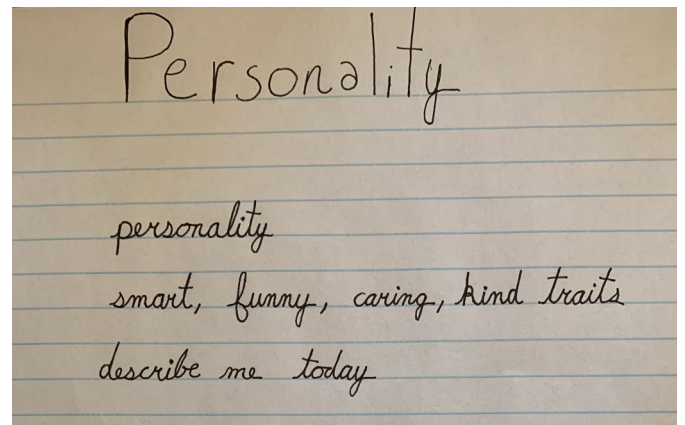 Personality
personality
smart, funny, caring, kind traits
describe me today